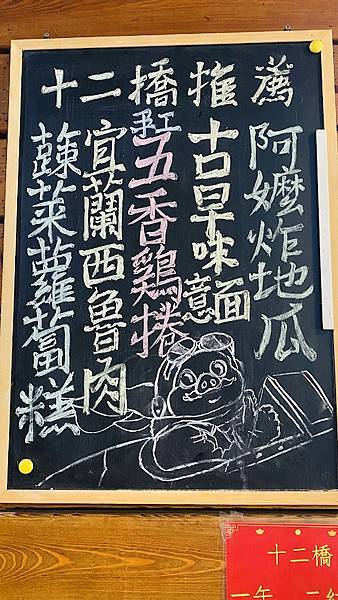 十二橋推薦
阿嬤炸地瓜
古早味意面
手工五香鷄捲
宜蘭西魯肉
蔬菜蘿蔔糕
十二橋